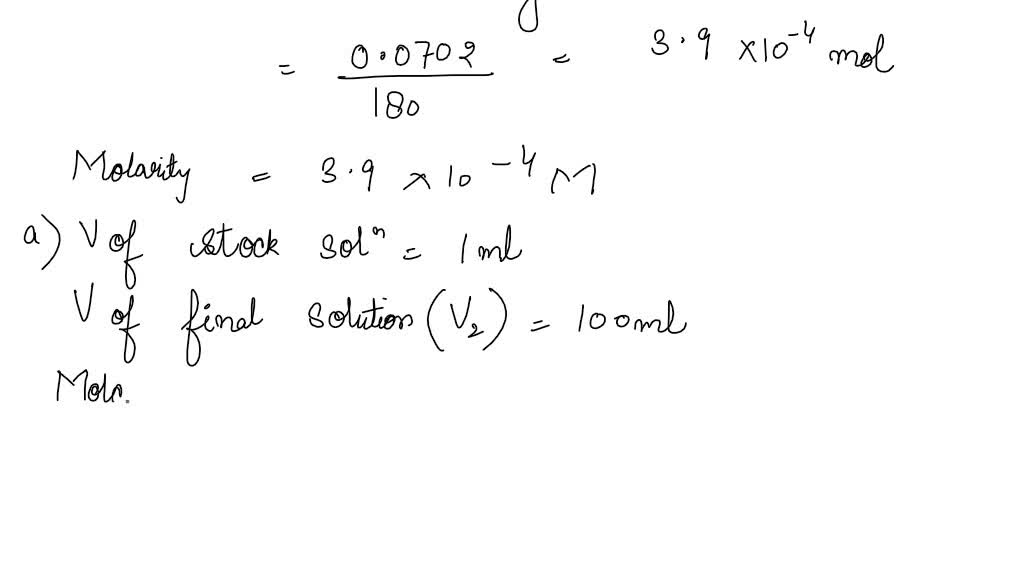 = 0.0702 / 180 = 3.9 × 10⁻⁴ mol
Molarity = 3.9 × 10⁻⁴ M
a) V of stock solⁿ = 1 ml
V of final solution (V₂) = 100 ml